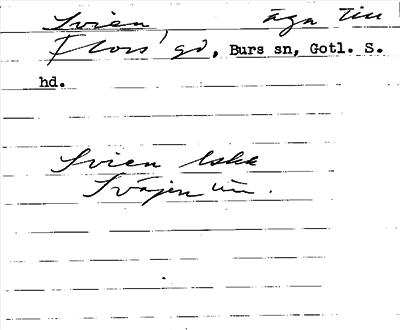 Svien, äga till
Flors' gd, Burs sn, Gotl. S.
hd.
Svien
Svajen